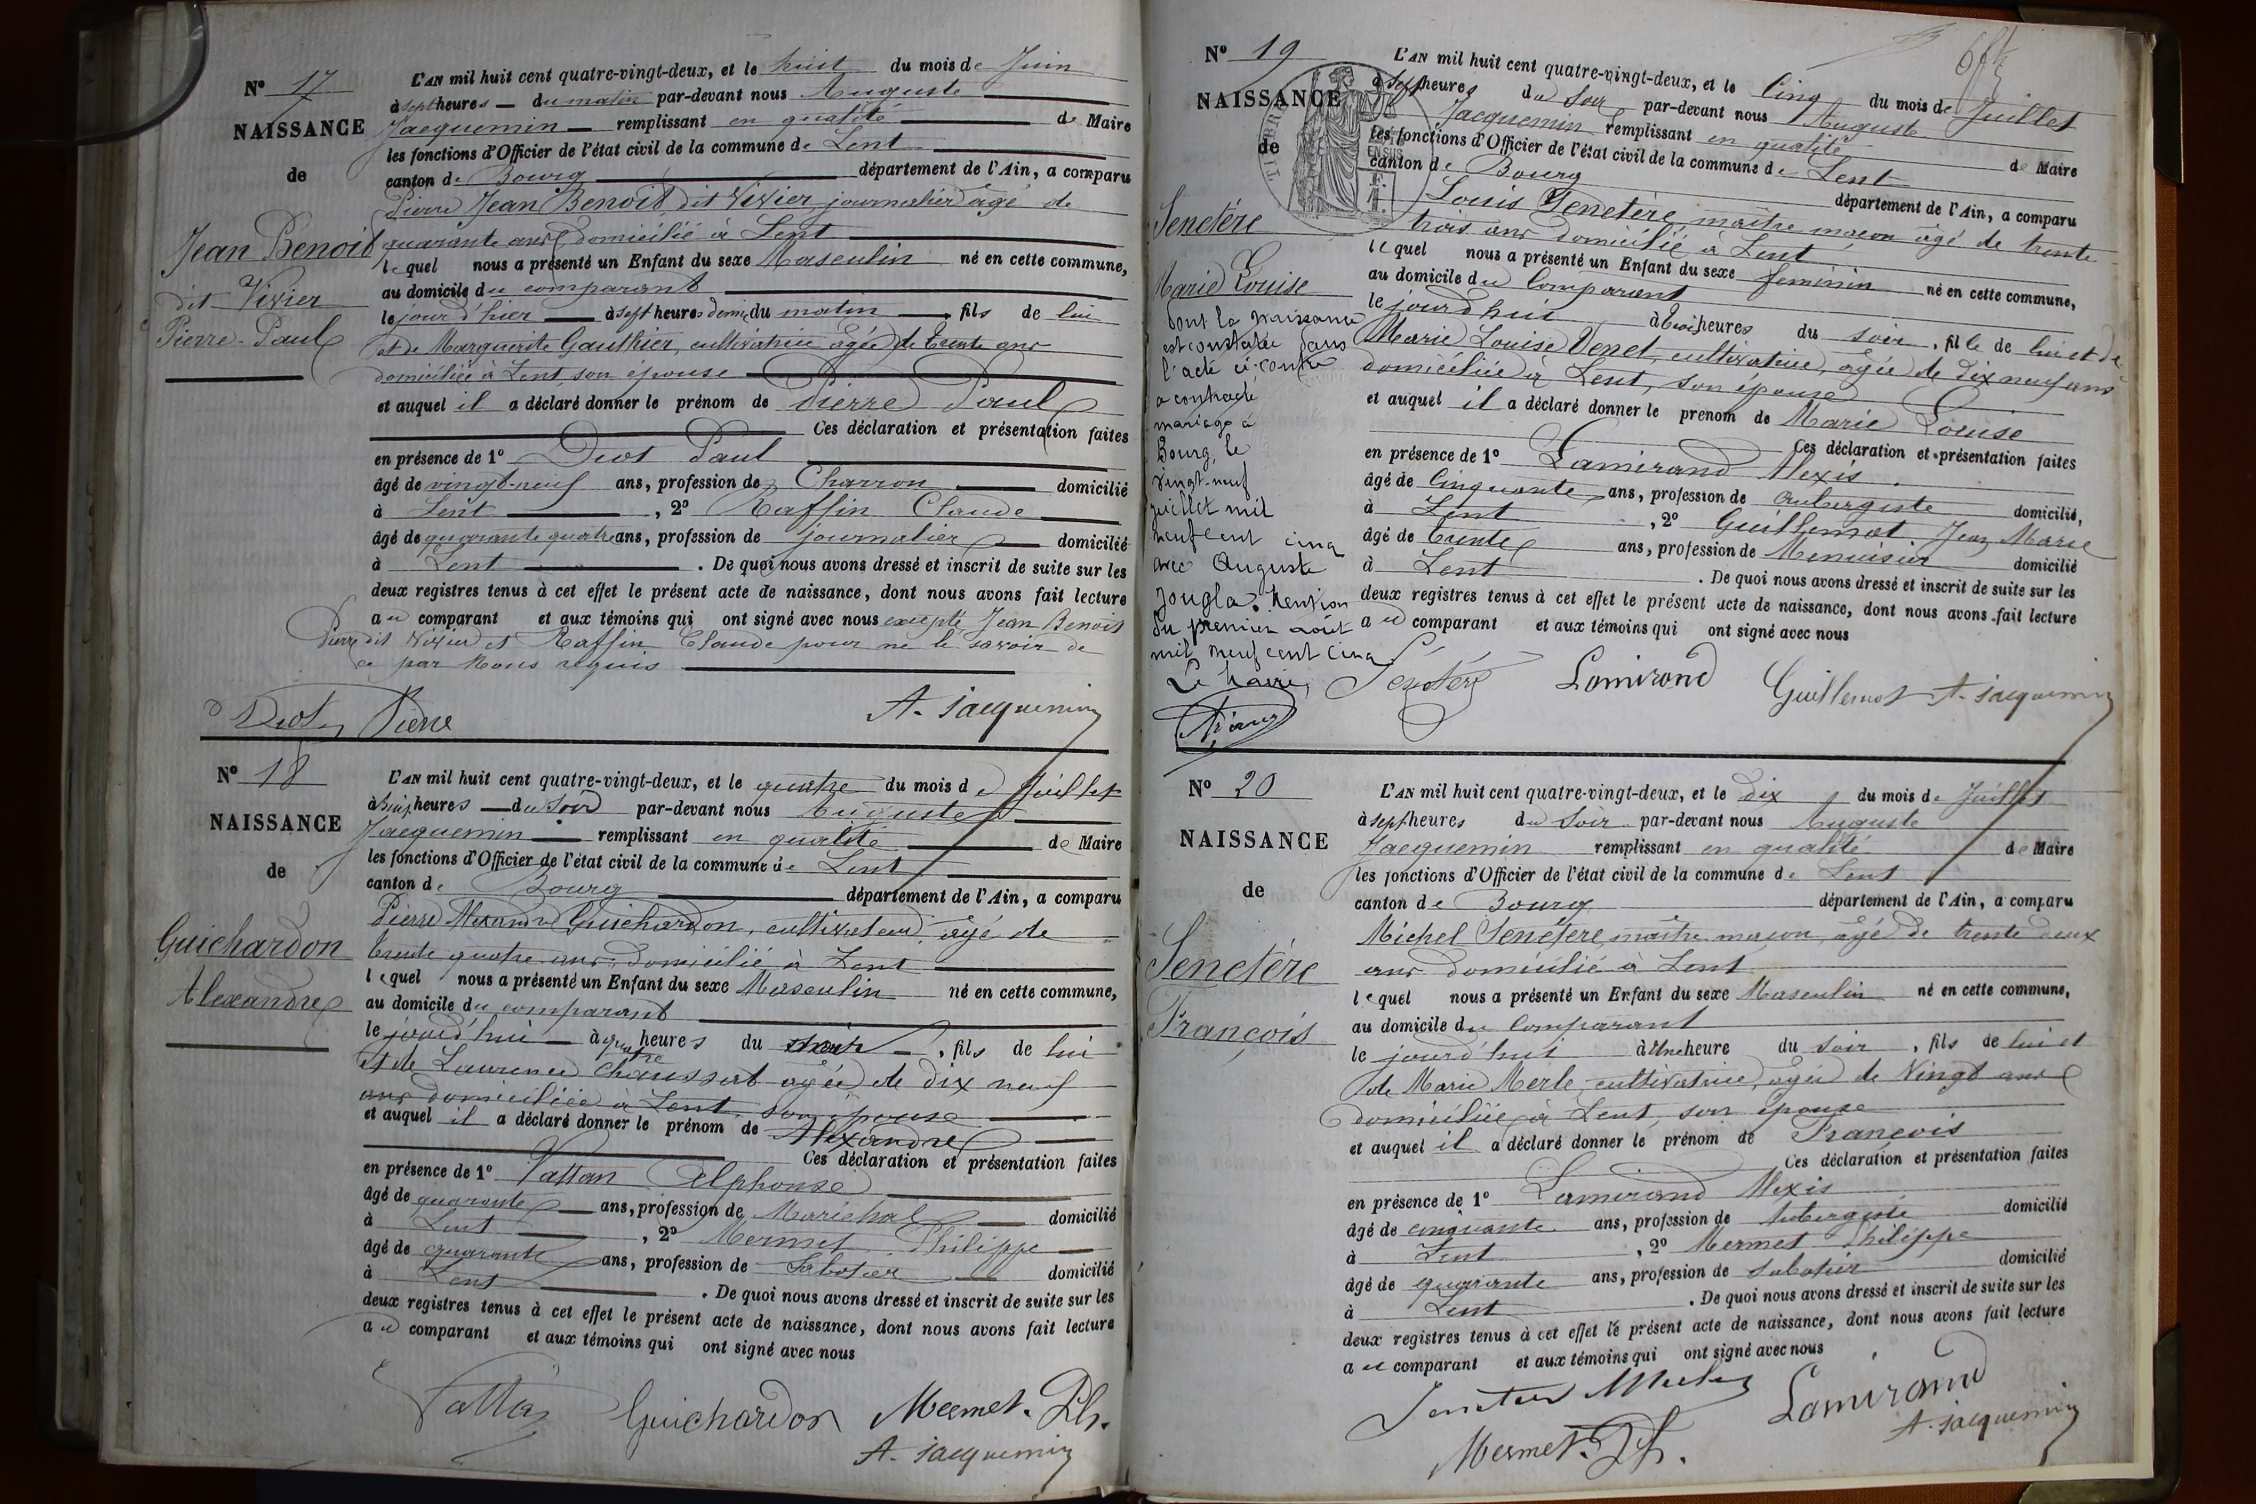 N° 17
NAISSANCE
de
Jean Benoit
dit Vivier
Pierre-Paul
L'AN mil huit cent quatre-vingt-deux, et le huit du mois de Juin
à sept heures du matin par-devant nous Auguste
Jacquemin remplissant en qualité de Maire
les fonctions d'Officier de l'état civil de la commune de Lent
canton de Bourg département de l'Ain, a comparu
Pierre Jean Benoit dit Vivier journalier âgé de
quarante ans domicilié à Lent
lequel nous a présenté un Enfant du sexe Masculin né en cette commune,
au domicile du comparant
le jour d'hier à sept heures demie du matin, fils de lui
et de Marguerite Gauthier, cultivatrice âgée de trente ans
domiciliée à Lent, son épouse
et auquel il a déclaré donner le prénom de Pierre Paul
Ces déclaration et présentation faites
en présence de 1° Diot Paul
âgé de vingt-neuf ans, profession de Charron domicilié
à Lent, 2° Raffin Claude
âgé de quarante quatre ans, profession de journalier domicilié
à Lent. De quoi nous avons dressé et inscrit de suite sur les
deux registres tenus à cet effet le présent acte de naissance, dont nous avons fait lecture
au comparant et aux témoins qui ont signé avec nous excepté Jean Benoit
Pierre dit Vivier et Raffin Claude pour ne le savoir de
ce par Nous requis
Diot Pierre A. Jacquemin
N° 18
NAISSANCE
de
Guichardon
Alexandre
L'AN mil huit cent quatre-vingt-deux, et le quatre du mois de Juillet
à huit heures du soir par-devant nous Auguste
Jacquemin remplissant en qualité de Maire
les fonctions d'Officier de l'état civil de la commune de Lent
canton de Bourg département de l'Ain, a comparu
Pierre Alexandre Guichardon, cultivateur âgé de
trente quatre ans domicilié à Lent
lequel nous a présenté un Enfant du sexe Masculin né en cette commune,
au domicile du comparant
le jourd'hui à quatre heures du, fils de lui
et de Laurence Chaussat âgée de dix neuf
ans domiciliée à Lent, son épouse
et auquel il a déclaré donner le prénom de Alexandre
Ces déclaration et présentation faites
en présence de 1° Vattan Alphonse
âgé de quarante ans, profession de Maréchal domicilié
à Lent, 2° Mermet Philippe
âgé de quarante ans, profession de Sabotier domicilié
à Lent. De quoi nous avons dressé et inscrit de suite sur les
deux registres tenus à cet effet le présent acte de naissance, dont nous avons fait lecture
au comparant et aux témoins qui ont signé avec nous
Vattan Guichardon Mermet. Ph.
A. Jacquemin
N° 19
NAISSANCE
de
Senetére
Marie Louise
dont la naissance
est constatée dans
l'acte ci-contre
a contracté
mariage à
Bourg, le
vingt-neuf
juillet mil
neuf cent cinq
avec Auguste
Jougla. Mention
du premier août
mil neuf cent cinq
Le Maire,
L'AN mil huit cent quatre-vingt-deux, et le Cinq du mois de Juillet
à Sept heures du Soir par-devant nous Auguste
Jacquemin remplissant en qualité de Maire
les fonctions d'Officier de l'état civil de la commune de Lent
canton de Bourg département de l'Ain, a comparu
Louis Senetère maître maçon âgé de trente
trois ans domicilié à Lent
lequel nous a présenté un Enfant du sexe féminin né en cette commune,
au domicile du Comparant
le jourd'hui à trois heures du soir, fille de lui et de
Marie Louise Venet, cultivatrice, âgée de dix neuf ans
domiciliée à Lent, son épouse
et auquel il a déclaré donner le prenom de Marie Louise
Ces déclaration et présentation faites
en présence de 1° Lamirand Alexis
âgé de Cinquante ans, profession de aubergiste domicilié,
à Lent, 2° Guillemot Jean Marie
âgé de trente ans, profession de Menuisier domicilié
à Lent. De quoi nous avons dressé et inscrit de suite sur les
deux registres tenus à cet effet le présent acte de naissance, dont nous avons fait lecture
au comparant et aux témoins qui ont signé avec nous
Sénétère Lamirand Guillemot A. Jacquemin
N° 20
NAISSANCE
de
Senetére
François
L'AN mil huit cent quatre-vingt-deux, et le dix du mois de Juillet
à sept heures du Soir par-devant nous Auguste
Jacquemin remplissant en qualité de Maire
les fonctions d'Officier de l'état civil de la commune de Lent
canton de Bourg département de l'Ain, a comparu
Michel Senétère, maître maçon, âgé de trente deux
ans domicilié à Lent
lequel nous a présenté un Enfant du sexe Masculin né en cette commune,
au domicile du Comparant
le jourd'hui à Une heure du soir, fils de lui et
de Marie Merle, cultivatrice, âgée de Vingt ans
domiciliée à Lent, son épouse
et auquel il a déclaré donner le prénom de François
Ces déclaration et présentation faites
en présence de 1° Lamirand Alexis
âgé de cinquante ans, profession de Aubergiste domicilié
à Lent, 2° Mermet Philippe
âgé de quarante ans, profession de sabotier domicilié
à Lent. De quoi nous avons dressé et inscrit de suite sur les
deux registres tenus à cet effet le présent acte de naissance, dont nous avons fait lecture
au comparant et aux témoins qui ont signé avec nous
Lamirand
Mermet. Ph. A. Jacquemin